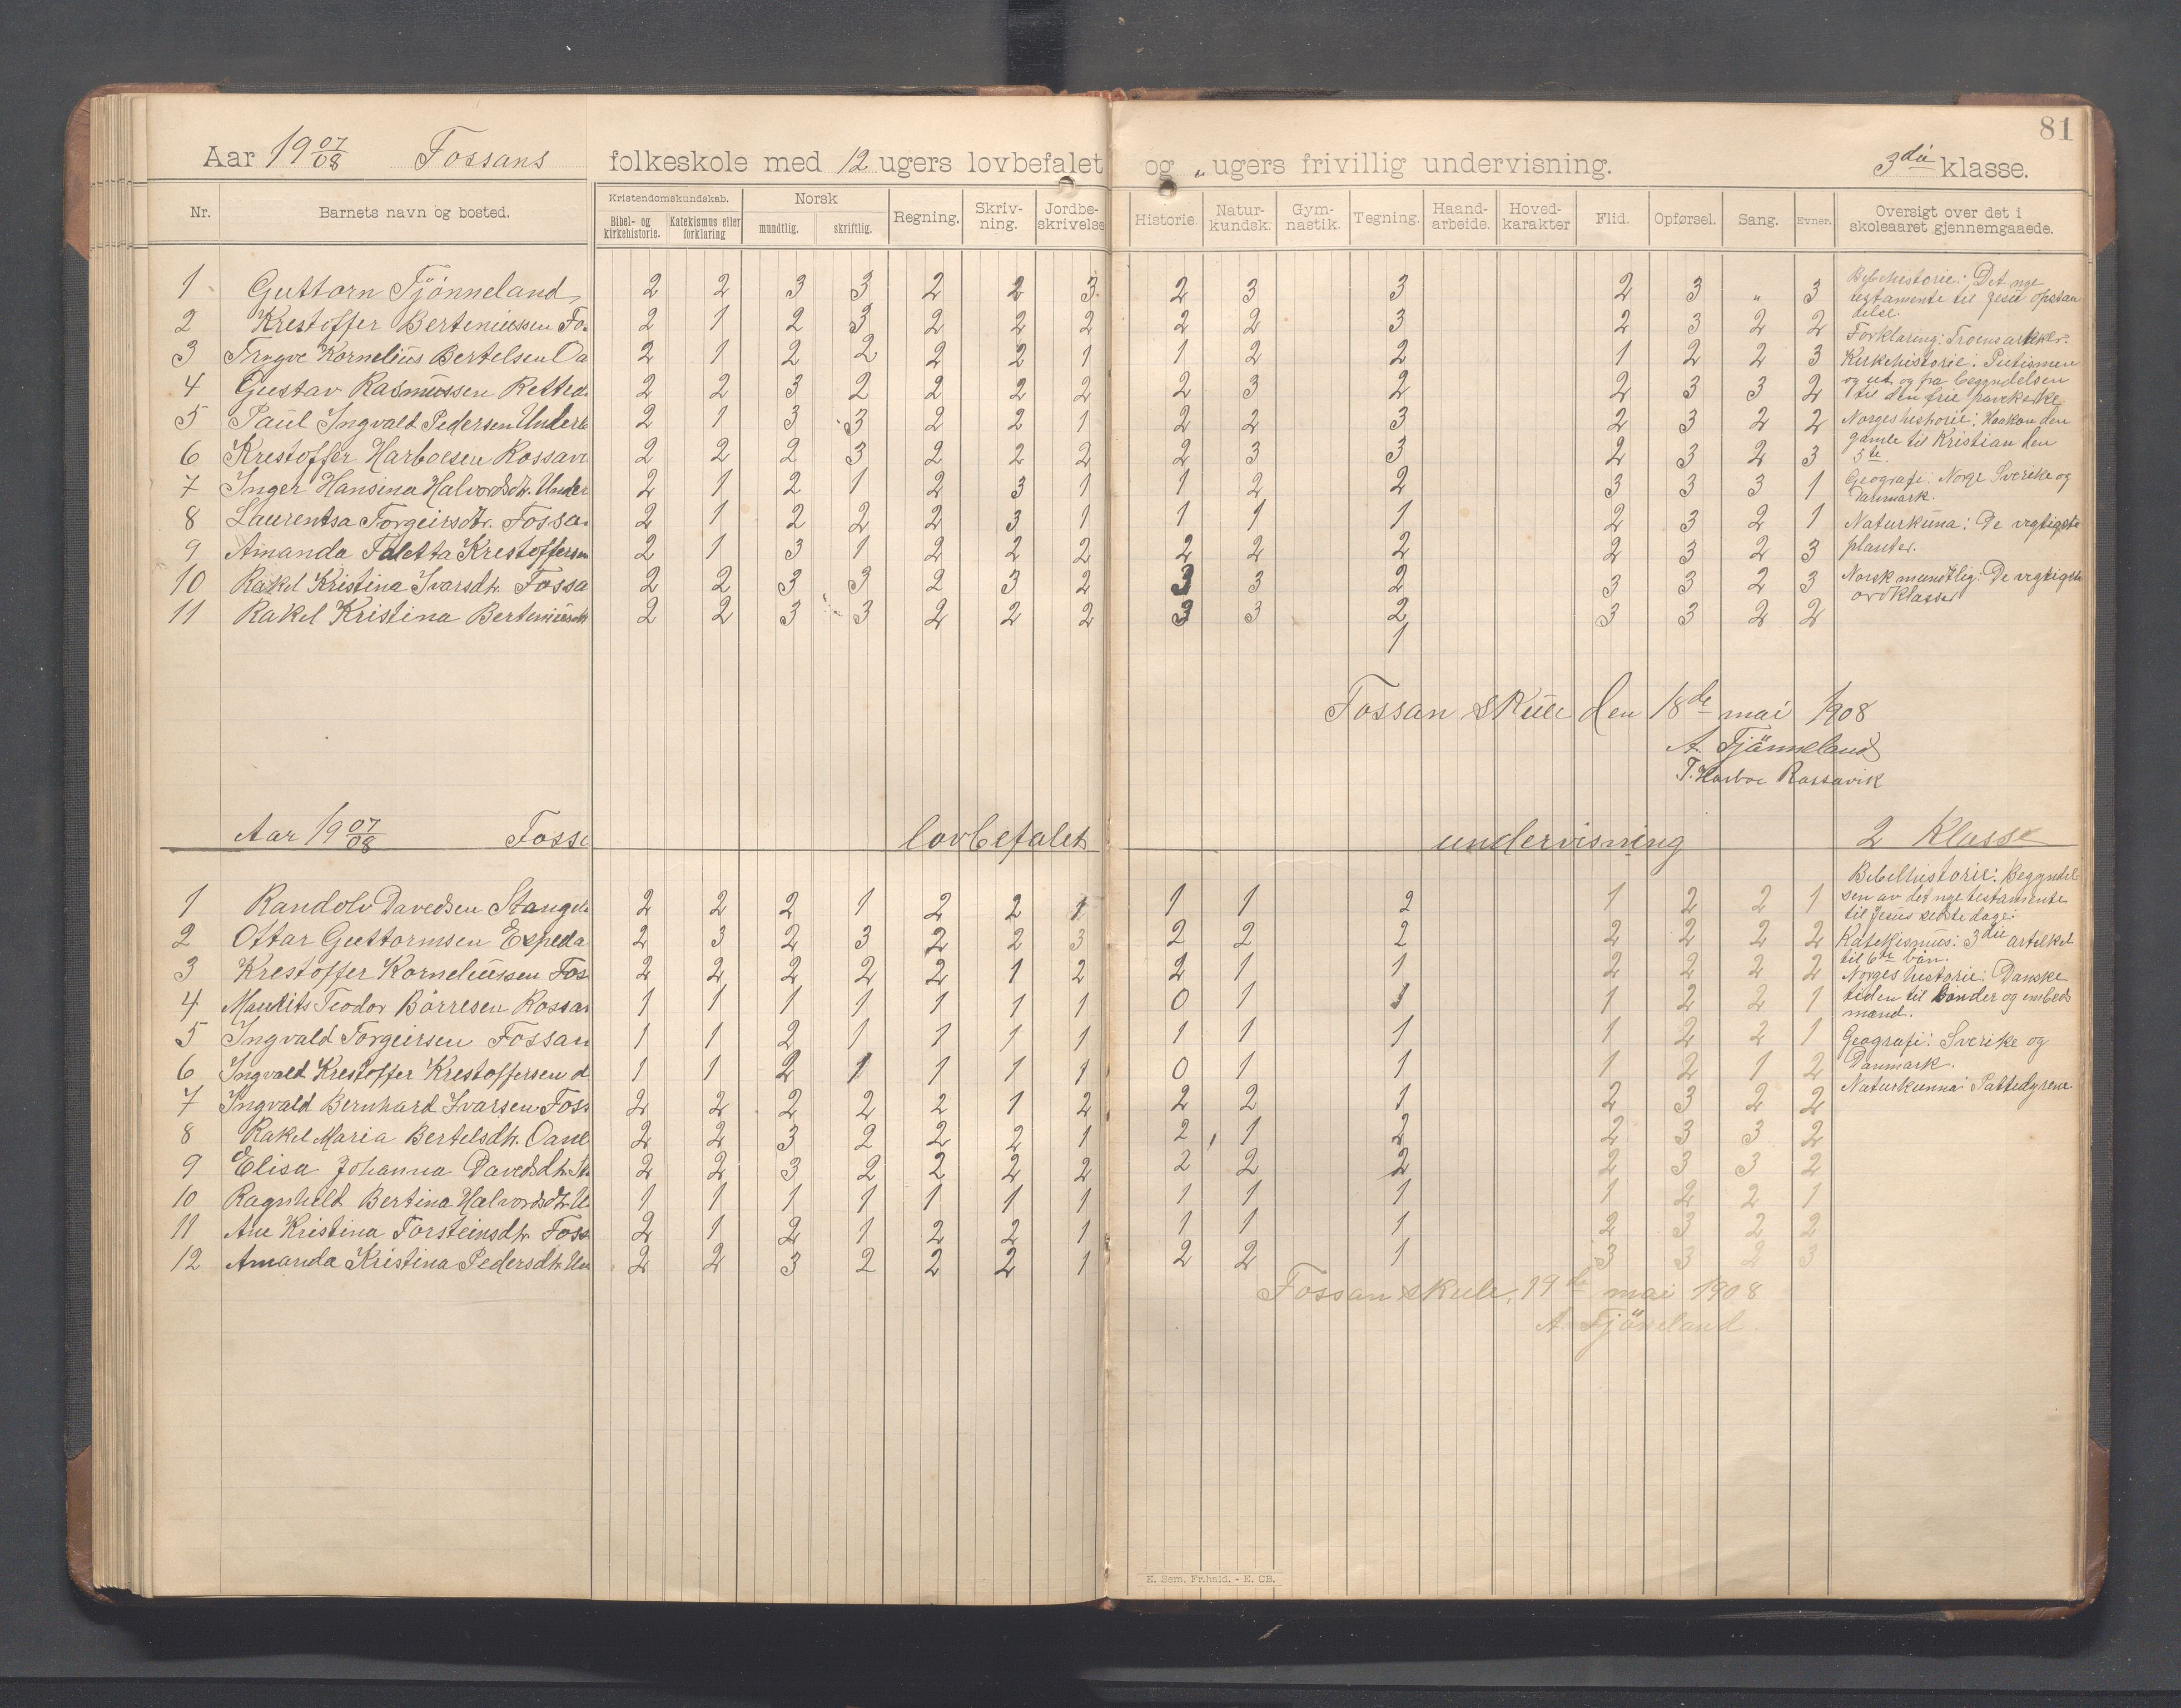 81
Aar 19 07/08 Fossans folkeskole med 12 ugers lovbefalet og „ ugers frivillig undervisning. 3die klasse.
Nr. Barnets navn og bosted. Kristendomskundskab. Bibel- og kirkehistorie. Katekismus eller forklaring Norsk mundtlig. skriftlig. Regning. Skriv-ning. Jordbe-skrivelse Historie. Natur-kundsk. Gym-nastik. Tegning. Haand-arbeide. Hoved-karakter Flid. Opførsel. Sang. Evner. Oversigt over det i skoleaaret gjennemgaaede.
1 Guttorn Tjönneland 2 2 3 3 2 2 3 2 3 3 2 3 „ 3
2 Krestoffer Berteniussen Fo 2 1 2 3 2 2 2 2 2 3 2 3 2 2
3 Trygve Kornelius Bertelsen Oa 2 1 2 2 2 2 1 1 2 2 1 2 2 3
4 Gustav Rasmussen Retted 2 2 3 2 2 2 2 2 3 2 2 3 3 2
5 Paul Ingvald Pedersen Underb 2 1 3 3 2 2 1 2 2 3 2 3 2 2
6 Krestoffer Harboesen Rossavi 2 2 2 3 2 2 2 2 3 3 2 3 2 3
7 Inger Hansina Halvordsdtr. Under 2 1 2 1 2 3 1 1 2 2 3 3 3 1
8 Laurentsa Torgeirsdtr. Fossa 2 1 2 2 2 3 1 1 1 1 2 3 2 1
9 Amanda Taletta Krestoffersen 2 1 3 1 2 2 2 2 2 2 2 3 2 3
10 Rakel Kristina Ivarsdtr. Fossa 2 2 3 3 2 3 2 3 3 2 3 3 2 3
11 Rakel Kristina Berteniusdt 2 2 3 3 2 2 2 3 3 2 3 3 2 2
1
Bibelhistorie: Det nye
testamente til Jesu opstan
delse.
Forklaring: Troens artikler.
Kirkehistorie: Pietismen
og ut og fra begyndelsen
til den frie
Norgeshistorie: Haakon den
gamle til Kristian den
5te.
Geografi: Norge Sverike og
Danmark.
Naturkuna: De vegtigste
planter.
Norsk mundtlig: De vegtigste
ordklasser
Fossan skule den 18de mai 1908
A. Tjönneland
T. Harboe Rossavik
Aar 19 07/08 Fossa lovbefalet undervisning 2 Klasse
1 Randolv Davedsen Stangela 2 2 2 1 2 2 1 1 1 2 1 2 2 1
2 Ottar Guttormsen Espeda 2 3 2 3 2 2 3 2 2 2 2 2 2 2
3 Krestoffer Korneliussen Fos 2 2 2 2 2 1 2 2 1 1 2 2 2 2
4 Maurits Teodor Börresen Rossav 1 1 1 1 1 1 1 0 1 1 1 2 2 1
5 Ingvald Torgeirsen Fossan 1 1 2 1 1 1 1 1 1 1 1 2 2 1
6 Ingvald Krestoffer Krestoffersen d 1 1 2 1 1 1 1 0 1 1 1 2 1 2
7 Ingvald Bernhard Ivarsen Foss 2 2 2 2 2 1 2 2 2 1 2 3 2 2
8 Rakel Maria Bertelsdtr. Oane 2 2 3 2 2 2 1 2 1 2 2 3 3 2
9 Elisa Johanna Davedsdtr. St 2 2 3 2 2 2 2 2 2 2 2 3 3 2
10 Ragnhild Bertina Halvordsdtr. U 1 1 1 1 1 1 1 1 1 1 1 2 2 1
11 Ane Kristina Torsteinsdtr. Foss 2 1 2 1 2 2 1 1 1 1 2 3 2 2
12 Amanda Kristina Pedersdtr. Un 2 2 3 2 2 2 1 2 2 1 3 3 2 3
Bibelhistorie: Begyndel
sen av det nye testamente
til Jesus sidste dage.
Katekismus: 3die artikkel
til 6te bøn.
Norges historie: Danske
tiden til bønder og embeds
mænd.
Geografi: Sverike og
Danmark.
Naturkunna: Pattedyrene
Fossan skule, 19de mai 1908
A. Tjönneland
E. Sem, Fr.hald. - E. CB.